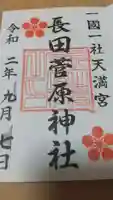 一國一社天満宮
長田菅原神社
令和二年九月七日